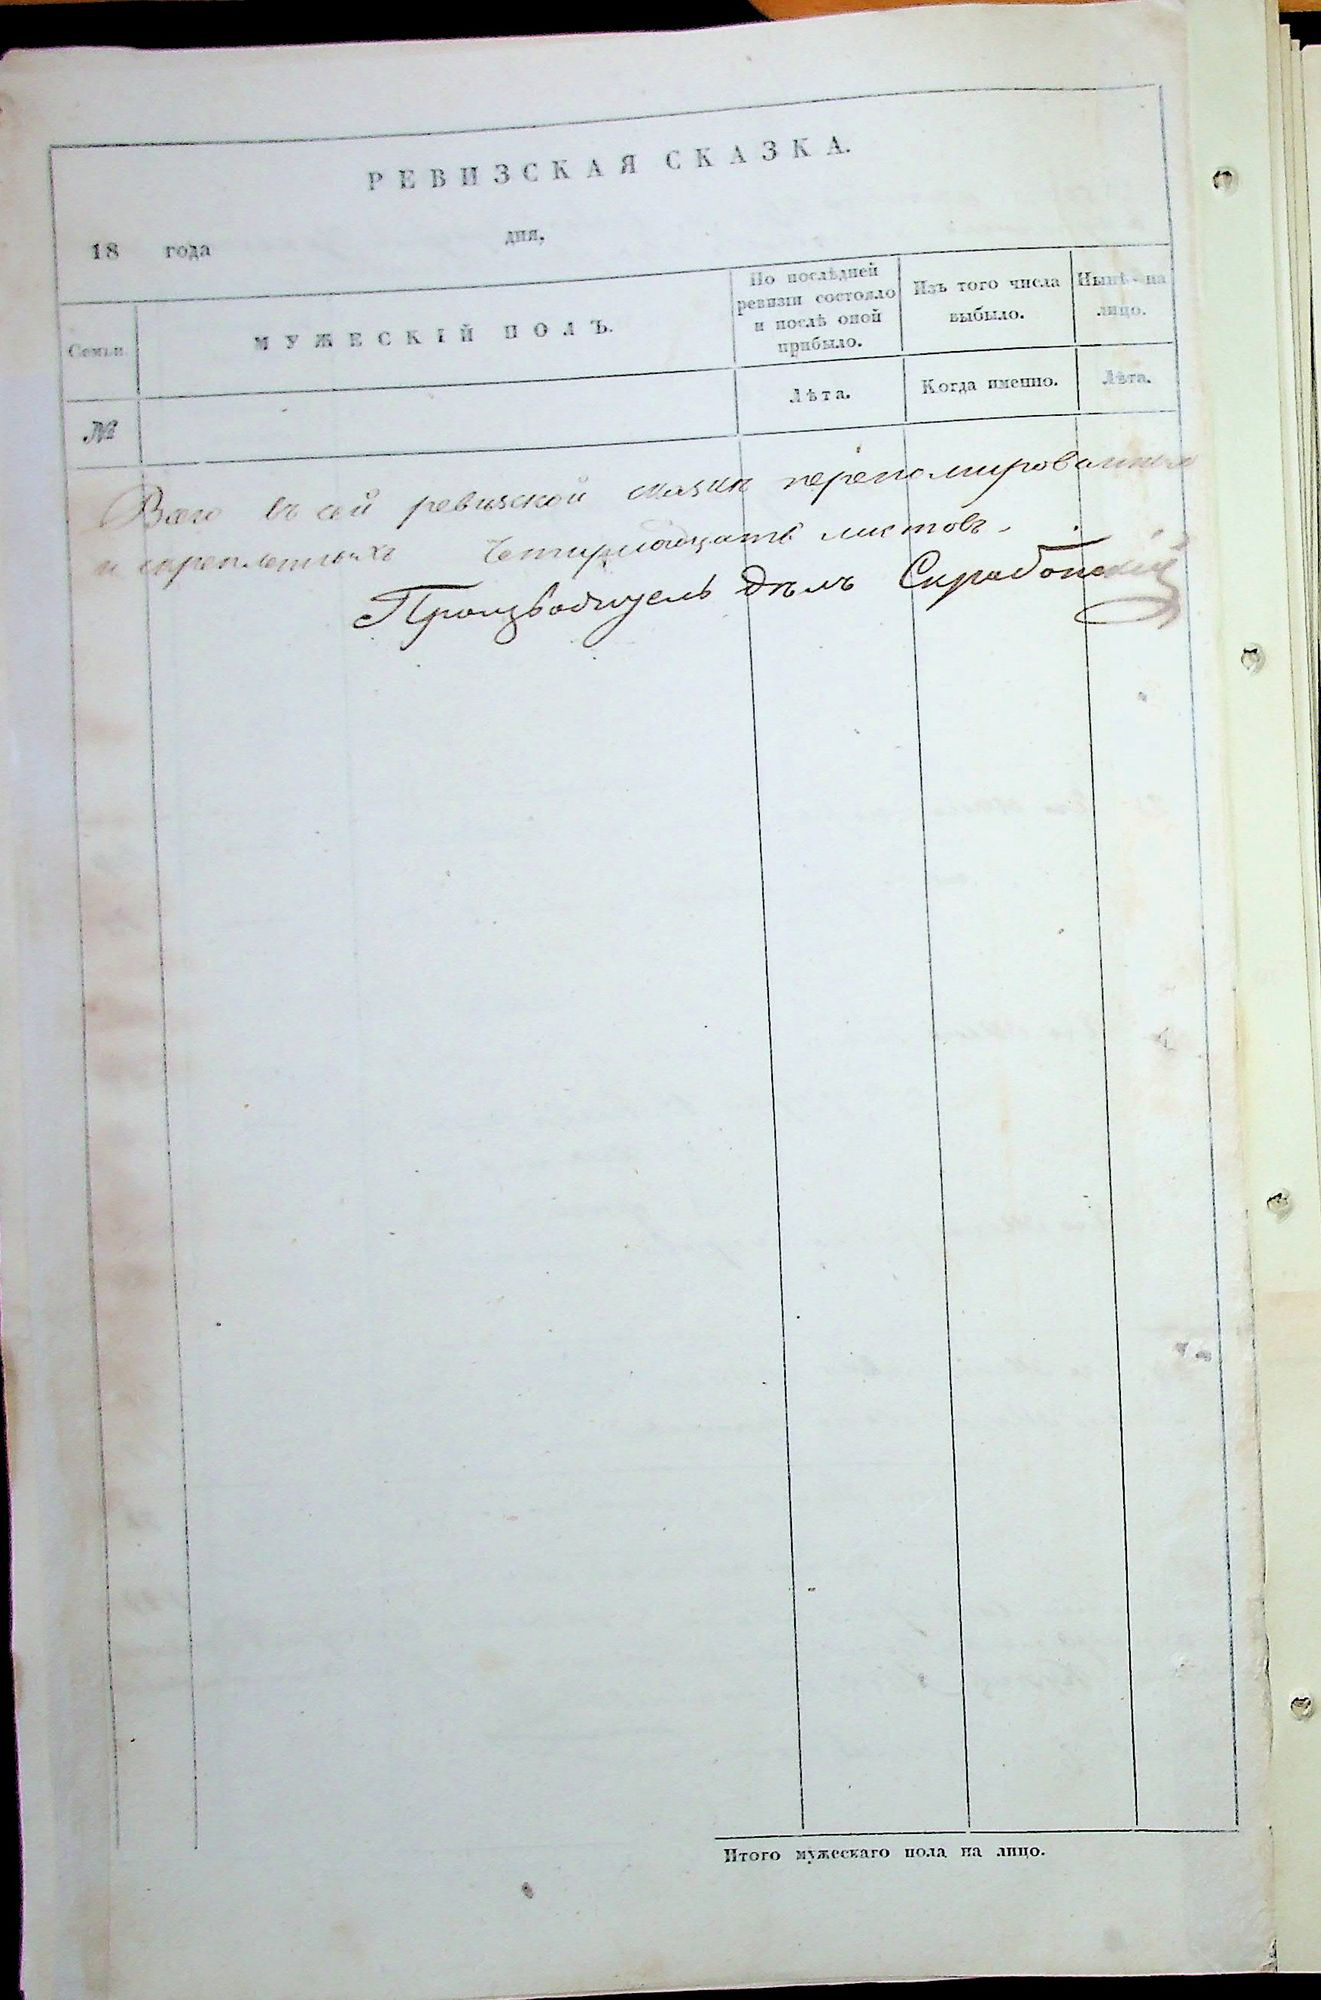 РЕВИЗСКАЯ СКАЗКА.
18 года дня,
Семьи.
МУЖЕСКІЙ ПОЛЪ.
По послѣдней
ревизіи состояло
и послѣ оной
прибыло.
Изъ того числа
выбыло.
Нынѣ на
лицо.
№
Лѣта.
Когда именно.
Лѣта.
Всего въ сей ревизской сказки перенумированныхъ
и скрепленныхъ Четырнадцать листовъ.
Производитель Дѣлъ
Итого мужескаго пола на лицо.